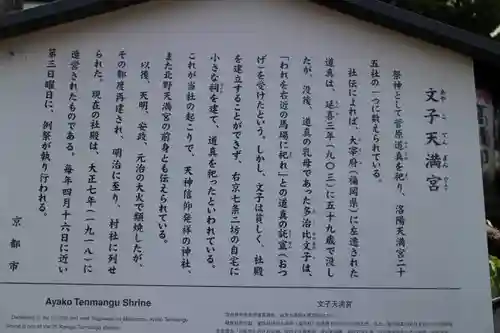 文子天満宮
あやこてんまんぐう
祭神として菅原道真を祀り、洛陽天満宮二十
五社の一つに数えられている。
社伝によれば、大宰府（福岡県）に左遷された
道真は、延喜三年（九〇三）に五十九歳で没し
たが、没後、道真の乳母であった多治比文子は、
「われを右近の馬場に祀れ」との道真の託宣（おつ
げ）を受けたという。しかし、文子は貧しく、社殿
を建立することができず、右京七条二坊の自宅に
小さな祠を建て、道真を祀ったといわれている。
これが当社の起こりで、天神信仰発祥の神社、
また北野天満宮の前身とも伝えられている。
以後、天明、安政、元治の大火で類焼したが、
その都度再建され、明治に至り、村社に列せ
られた。現在の社殿は、大正七年（一九一八）に
造営されたものである。毎年四月十六日に近い
第三日曜日に、例祭が執り行われる。
京都市
Ayako Tenmangu Shrine
文子天満宮